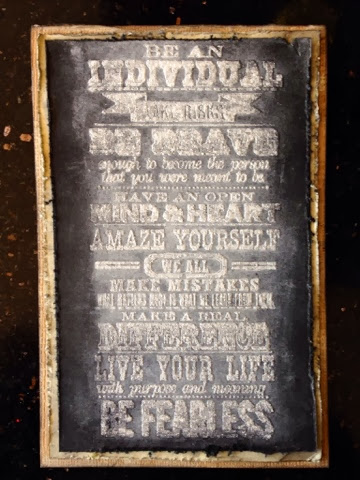 BE AN
INDIVIDUAL
TAKE RISKS
BE BRAVE
enough to become the person
that you were meant to be
HAVE AN OPEN
MIND & HEART
AMAZE YOURSELF
WE ALL
MAKE MISTAKES
WHAT MATTERS MOST IS WHAT WE LEARN FROM THEM
MAKE A REAL
DIFFERENCE
LIVE YOUR LIFE
with purpose and meaning
BE FEARLESS